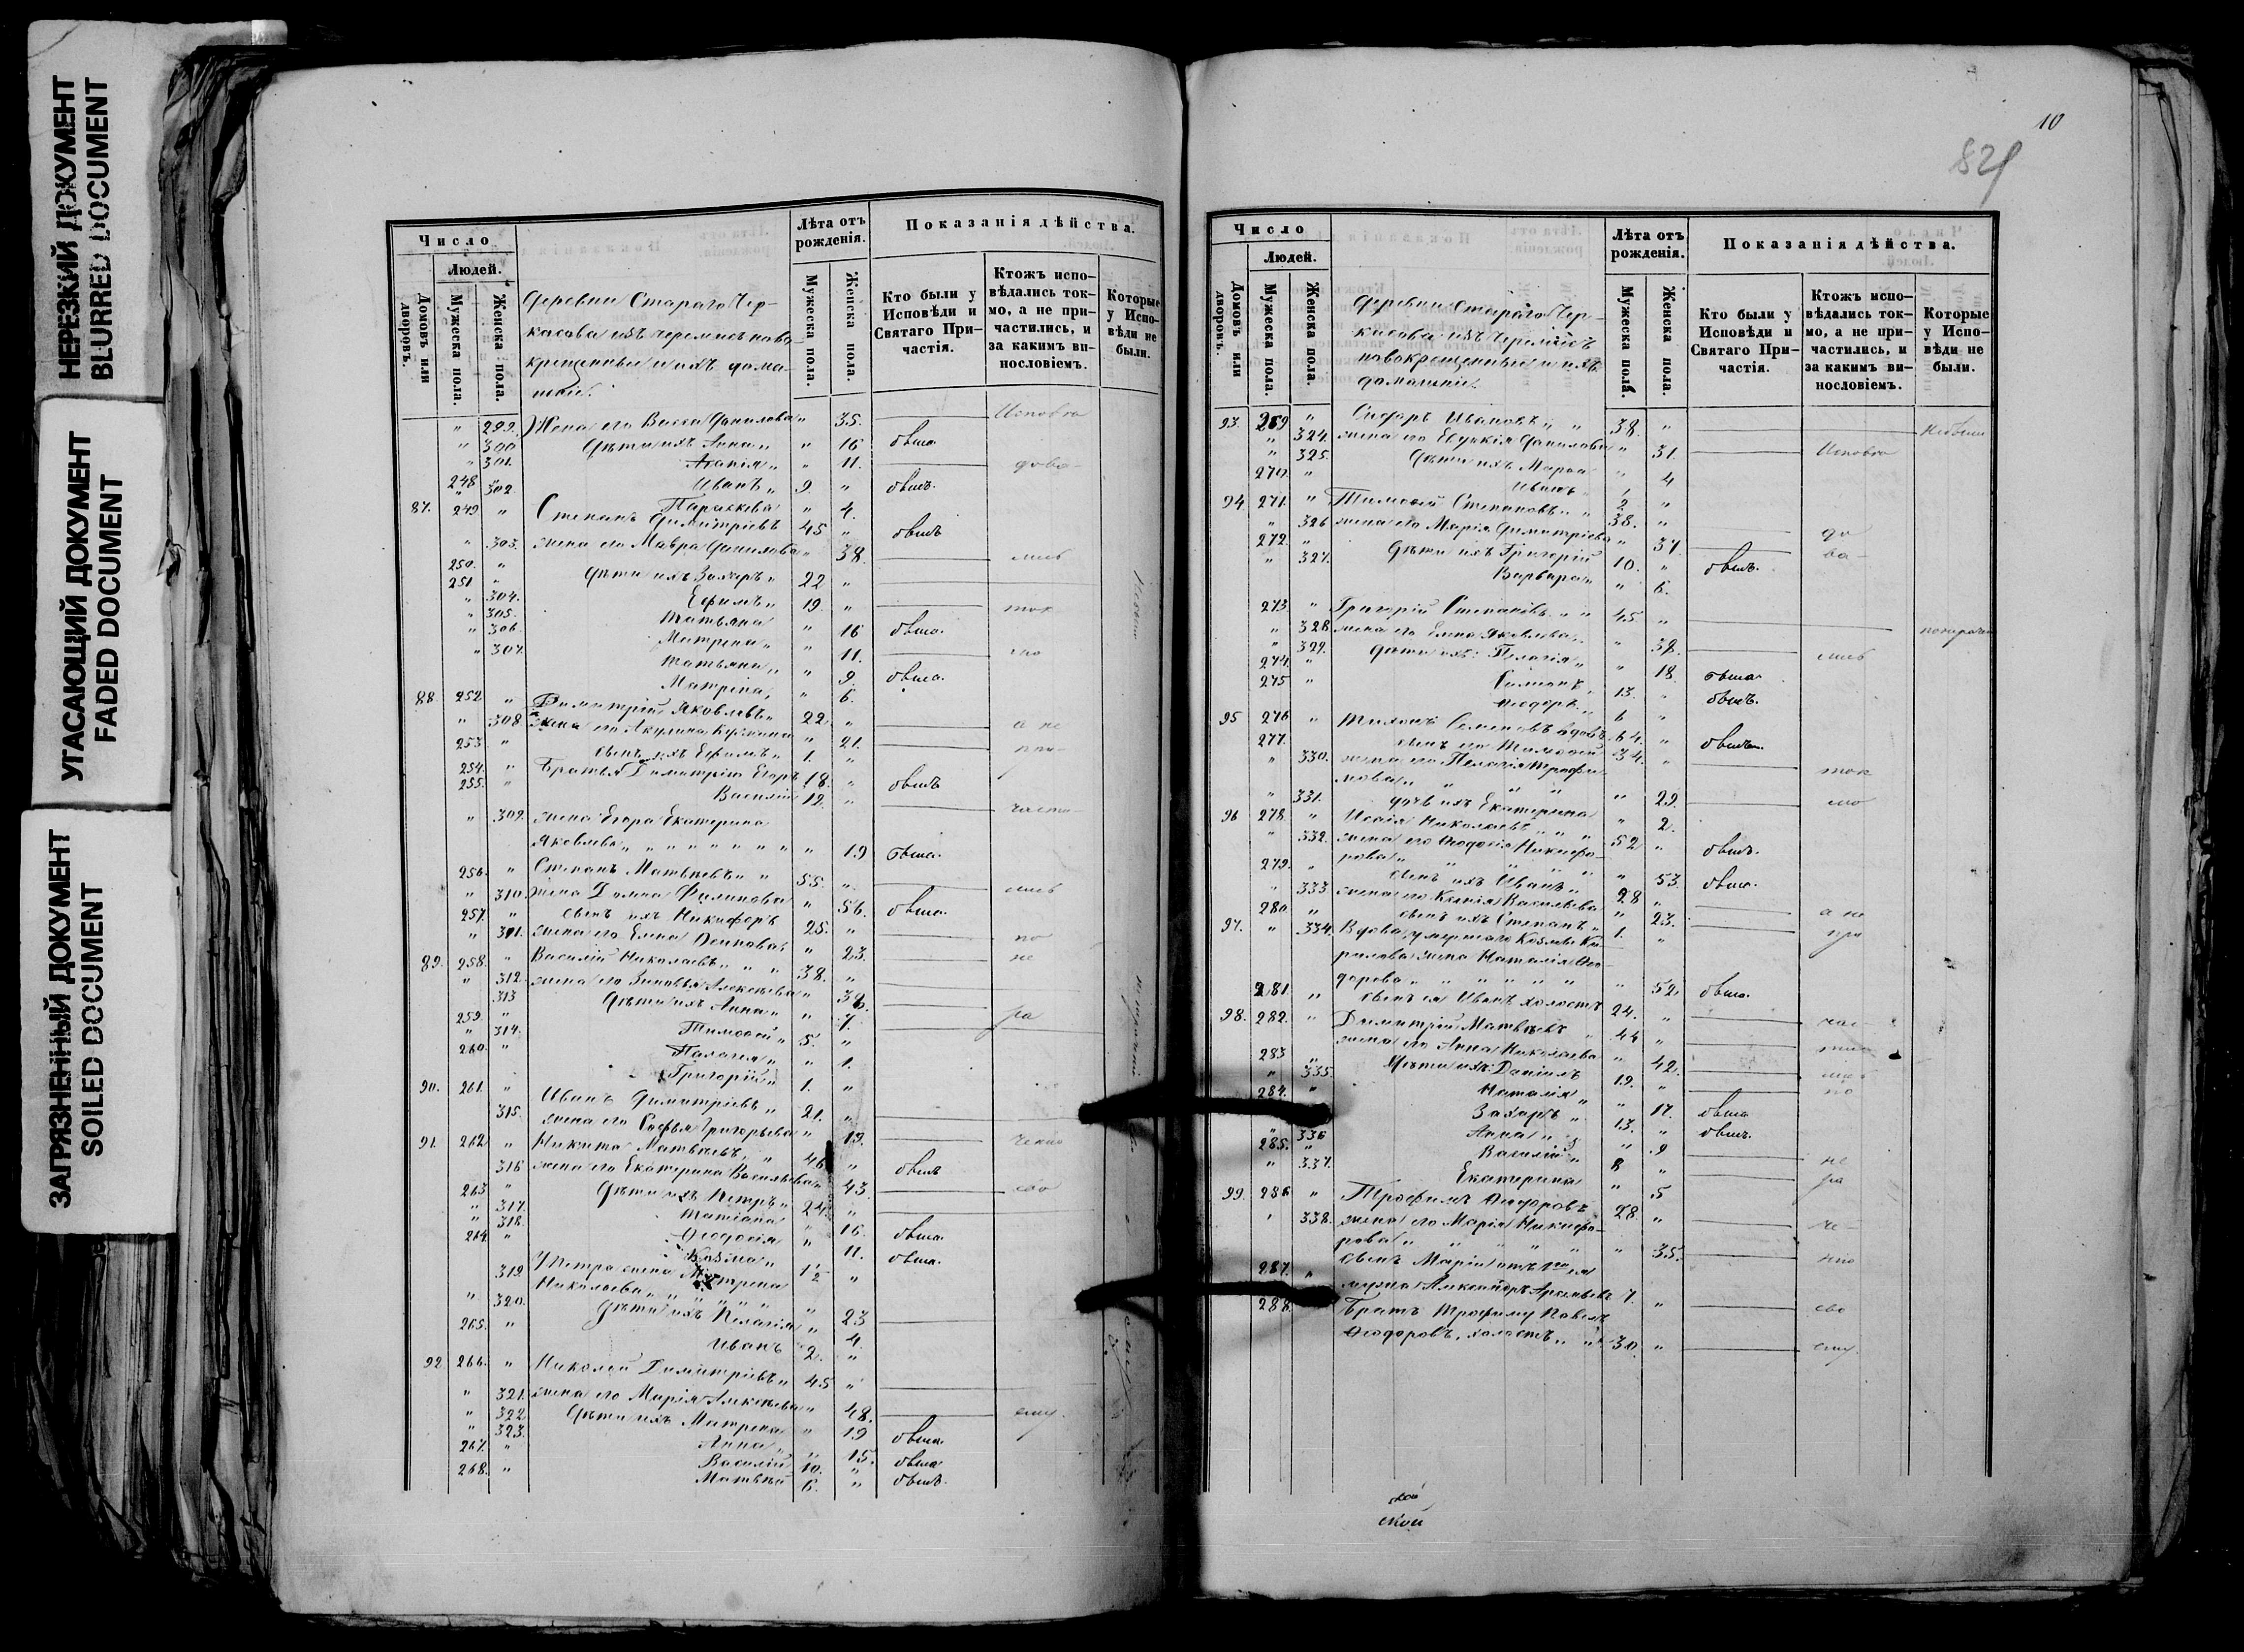 НЕРЕЗКИЙ ДОКУМЕНТ
BLURRED DOCUMENT
УГАСАЮЩИЙ ДОКУМЕНТ
FADED DOCUMENT
ЗАГРЯЗНЕННЫЙ ДОКУМЕНТ
SOILED DOCUMENT
Число
Людей.
Домовъ или дворовъ.
Мужеска пола.
Женска пола.
Деревни Стараго Чер-
касова изъ черемисъ ново
крещенныи и ихъ дома-
шніи.
Лѣта отъ рожденія.
Мужеска пола.
Женска пола.
Показанія дѣйства.
Кто были у Исповѣди и Святаго При-частія.
Ктожъ испо-вѣдались ток-мо, а не при-частились, и за какимъ ви-нословіемъ.
Которые у Испо-вѣди не были.
" 299. Жена его Васса Данилова " 35. Исповѣ
" 300 Дѣти ихъ Анна " " 16 была
" 301. " 11. дова-
248 " Иванъ " 9 " былъ.
" 302. Параскева " 4.
87. 249 " Степанъ Димитріевъ 45 " былъ
" 303. жена его Мавра Данилова " 38. лись
250. " Дѣти ихъ Захаръ " 22 "
251 " Ефимъ " 19. " ток
" 304. Татьяна " 16 была.
" 305. Матрена " " 11. мо
" 306. Татьяна " " 9. была.
" 307. Матрена, " 6.
88. 252 " Димитрій Яковлевъ " 22. "
" 308 жена его Акулина " 21. а не
253. " сынъ ихъ Ефимъ " 1. " при-
254. " Братья Димитрію Егоръ 18. " былъ
255. " Василій 12. "
" 309. жена Егора Екатерина часті-
Яковлева " " " " " " " 19 была.
256. " Степанъ Матвѣевъ " " 55. "
" 310. жена Домна Филипова " 56. была. лись
257. " сынъ ихъ Никифоръ 25. "
" 311. жена его Елена Осипова " 23. по
89. 258. " Василій Николаевъ " " " 38. " не
" 312. жена его Зиновья Алексѣева " 38.
313 Дѣти ихъ Анна " " 7. ра
259 " Тимоѳей " 5. "
" 314. Палагея " " 1.
260. " Григорій " 1. "
90. 261. " Иванъ Димитріевъ " 21. "
315. жена его Софья Григорьева " 19.
91. 262 " Никита Матвѣевъ, " 46 " былъ
316 жена его Екатерина Васильева " 43. сво
263 " Дѣти ихъ Петръ " 24. "
" 317. Татіана " 16. была.
" 318. Ѳеодосія " 11. была.
264. " Козма " 1/2 "
319 У Петра жена Матрена
Николаева " " " " " " 23
" 320. Дѣти ихъ Пелагія " 4.
265. " Иванъ 2. "
92 266. " Николай Димитріевъ " 45 "
" 321. жена его Марія Алексѣева " 48. ему.
" 322 Дѣти ихъ Матрена " 19 была.
" 323. Анна " " 15. была
267. " Василій 10. " былъ.
268. " Матвѣй 6. "
10
829
Число
Людей.
Домовъ или дворовъ.
Мужеска пола.
Женска пола.
Деревни Стараго Чер-
касова изъ черемисъ
новокрещенныи и ихъ
домашніи.
Лѣта отъ рожденія.
Мужеска пола.
Женска пола.
Показанія дѣйства.
Кто были у Исповѣди и Святаго При-частія.
Ктожъ испо-вѣдались ток-мо, а не при-частились, и за какимъ ви-нословіемъ.
Которые у Испо-вѣди не были.
93. 269 " Сидоръ Ивановъ " " 38. " небыли
" 324. жена его Евдокія Данилова " 31. Исповѣ
" 325. Дѣти ихъ Марѳа " 4
270. " Иванъ " 2 "
94. 271. " Тимоѳей Степановъ " " 38. "
" 326 жена его Марія Димитріева " 37. до
272. " Дѣти ихъ Григорій 10. " былъ. ва-
" 327. Варвара " " 6.
273. " Григорій Степановъ " " 45 "
" 328 жена его Елена Яковлева " " 38.
" 329. Дѣти ихъ: Пелагія " " 18. была лись
274. " Симонъ 13. " былъ.
275 " Ѳедоръ " 6 "
95 276 " Тихонъ Семеновъ вдовъ 64. " былъ.
277. сынъ его Тимоѳей 34. "
" 330. жена его Пелагія Трофи- ток
мова " " " " 29.
" 331. дочь ихъ Екатерина " 2. мо
96 278. " Исаія Николаевъ " " " 52 " былъ.
" 332. жена его Ѳеодосія Никифо-
рова " " " " 53. была.
279. " сынъ ихъ Иванъ " 28 "
" 333 жена его Ксенія Васильева " 23. а не
280 " сынъ ихъ Степанъ " 1. " при
97. " 334. Вдова умершаго Козмы Ки-
рилова жена Наталія Ѳео-
дорова " " " " " " 52. была.
281 " сынъ ея Иванъ холостъ 24. "
98. 282. " Димитрій Матвѣевъ " 44 " час-
жена его Анна Николаева " 42. тили
283 " Дѣти ихъ: Даніилъ 19. "
" 335. Наталія " " 17. была по
284. " Захаръ " 13. " былъ.
" 336 Анна " " " 9
285. " Василій " 8 " не
" 337. Екатерина " 5 ра
99. 286 " Трофимъ Ѳеодоровъ 28. "
" 338. жена его Марія Никифо- че-
рова " " " " " 35. нію
287. " сынъ Маріи отъ 1го ея
мужа Александръ 7. " сво
288. " Братъ Трофиму Павелъ
Ѳеодоровъ, холостъ " " 30. " ему.
ской
ской